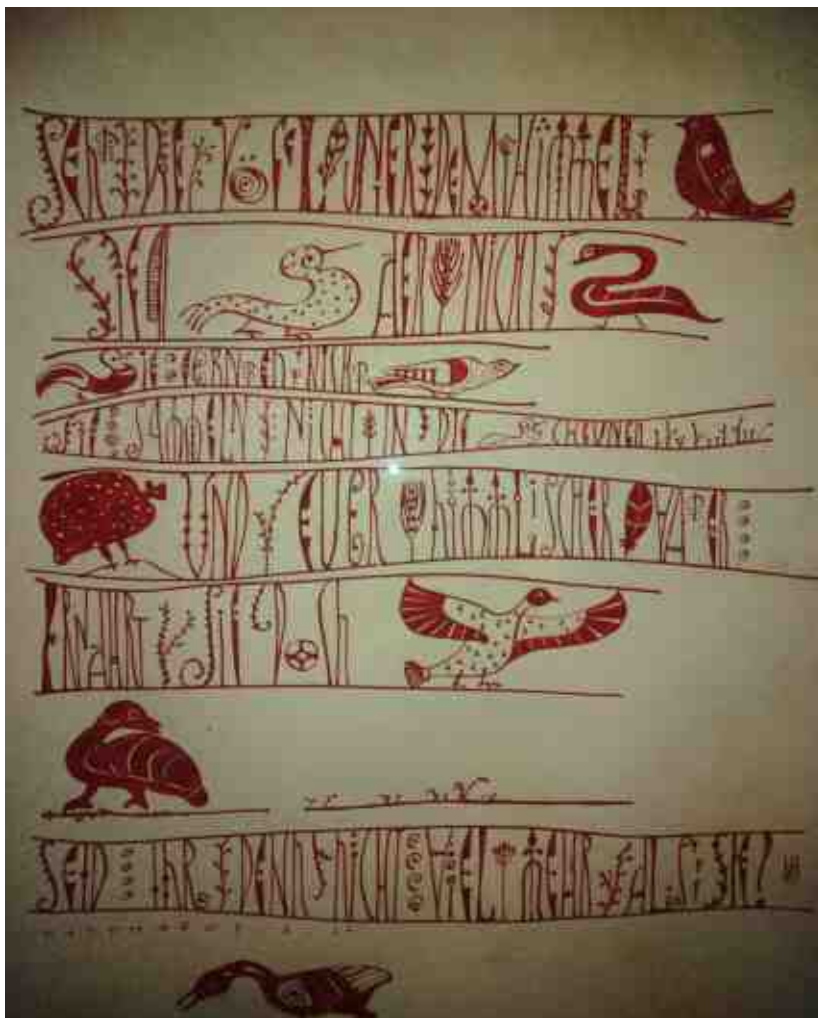 SEHT DIE VÖGEL UNTER DEM HIMMEL
SIE SÄEN NICHT
SIE ERNTEN NICHT
SIE SAMMELN NICHT IN DIE SCHEUNEN
UND EUER HIMMLISCHER VATER
ERNÄHRT SIE DOCH
SEID IHR DENN NICHT VIEL MEHR ALS SIE?